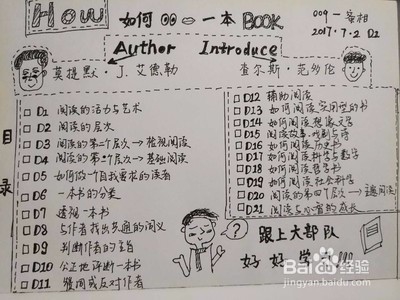 How 如何 一本 BOOK
009-寒相
2017·7·2 D1
Author Introduce
莫提默·J.艾德勒
查尔斯·范多伦
目录
D1 阅读的活力与艺术
D2 阅读的层次
D3 阅读的第一个层次→
D4 阅读的第二个层次→
D5 如何做一个自我要求的读者
D6 一本书的分类
D7 透视一本书
D8 与作者找出共通的词义
D9 判断作者的主旨
D10 公正地评断一本书
D11 赞同或反对作者
D12 辅助阅读
D13 如何阅读实用型的书
D14 如何阅读想象文学
D15 阅读故事、戏剧与诗
D16 如何阅读历史书
D17 如何阅读科学与数学
D18 如何阅读哲学书
D19 如何阅读社会科学
D20 阅读的第四个层次→主题阅读
D21 阅读与心智的成长
?
跟上大部队
好好学习!!!
Baidu经验
jingyan.baidu.com